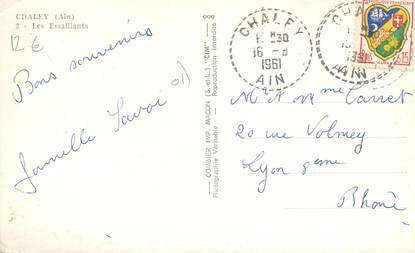 CHALEY (Ain)
2 - Les Essaillants
12 €
Bons souvenirs
famille Savoi
COMBIER IMP. MACON (S.-et-L.) "CIM"
Photographie Véritable - Reproduction Interdite
CHALEY
1961
AIN
1961
AIN
M et Mme Carret
20 rue Volney
Lyon 8eme
Rhône